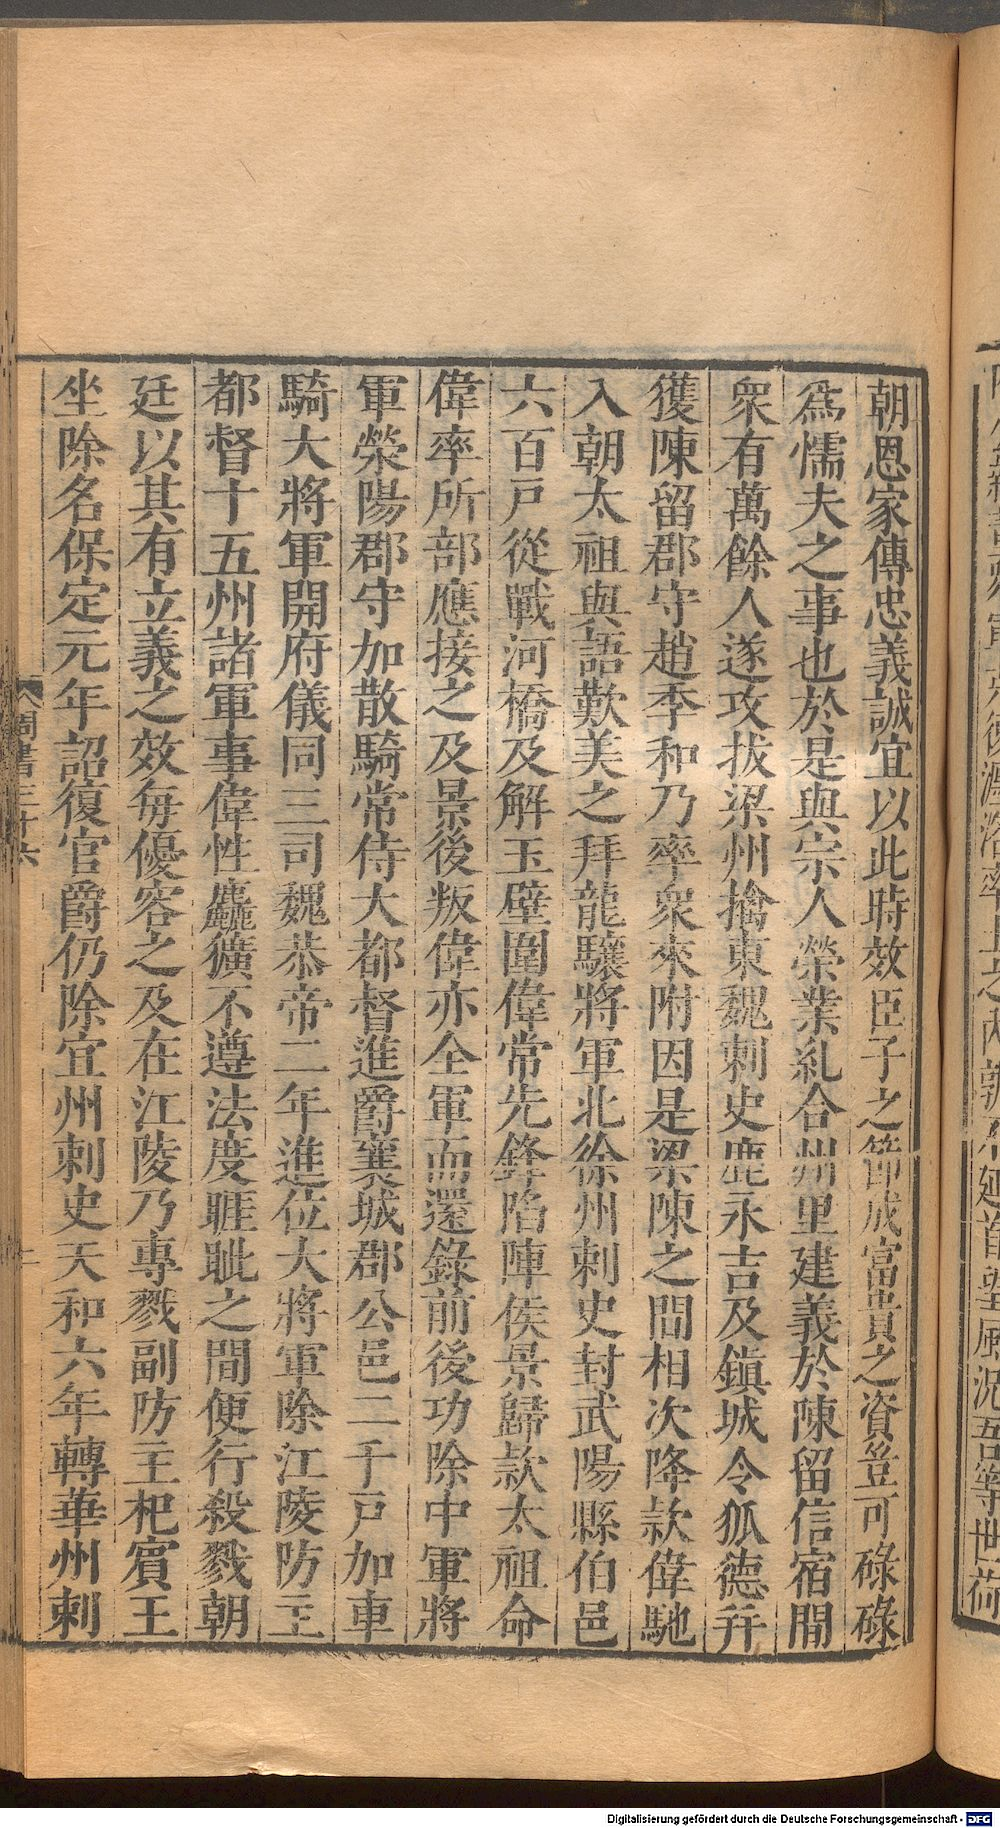 朝恩家傳忠義誠宜以此時效臣子之節成富貴之資豈可碌碌
爲懦夫之事也於是與宗人榮業糺合州里建義於陳留信宿間
衆有萬餘人遂攻拔梁州擒東魏刺史鹿永吉及鎮城令狐德幷
獲陳留郡守趙季和乃率衆來附因是梁陳之間相次降款偉馳
入朝太祖與語歎美之拜龍驤將軍北徐州刺史封武陽縣伯邑
六百戸從戰河橋及解玉壁圍偉常先鋒陷陣侯景歸款太祖命
偉率所部應接之及景後叛偉亦全軍而還錄前後功除中軍將
軍榮陽郡守加散騎常侍大都督進爵襄城郡公邑二千戸加車
騎大將軍開府儀同三司魏恭帝二年進位大將軍除江陵防主
都督十五州諸軍事偉性麤獷不遵法度睚眦之間便行殺戮朝
廷以其有立義之效每優容之及在江陵乃專戮副防主杞賓王
坐除名保定元年詔復官爵仍除宜州刺史天和六年轉華州刺
周書三十六
Digitalisierung gefördert durch die Deutsche Forschungsgemeinschaft - DFG